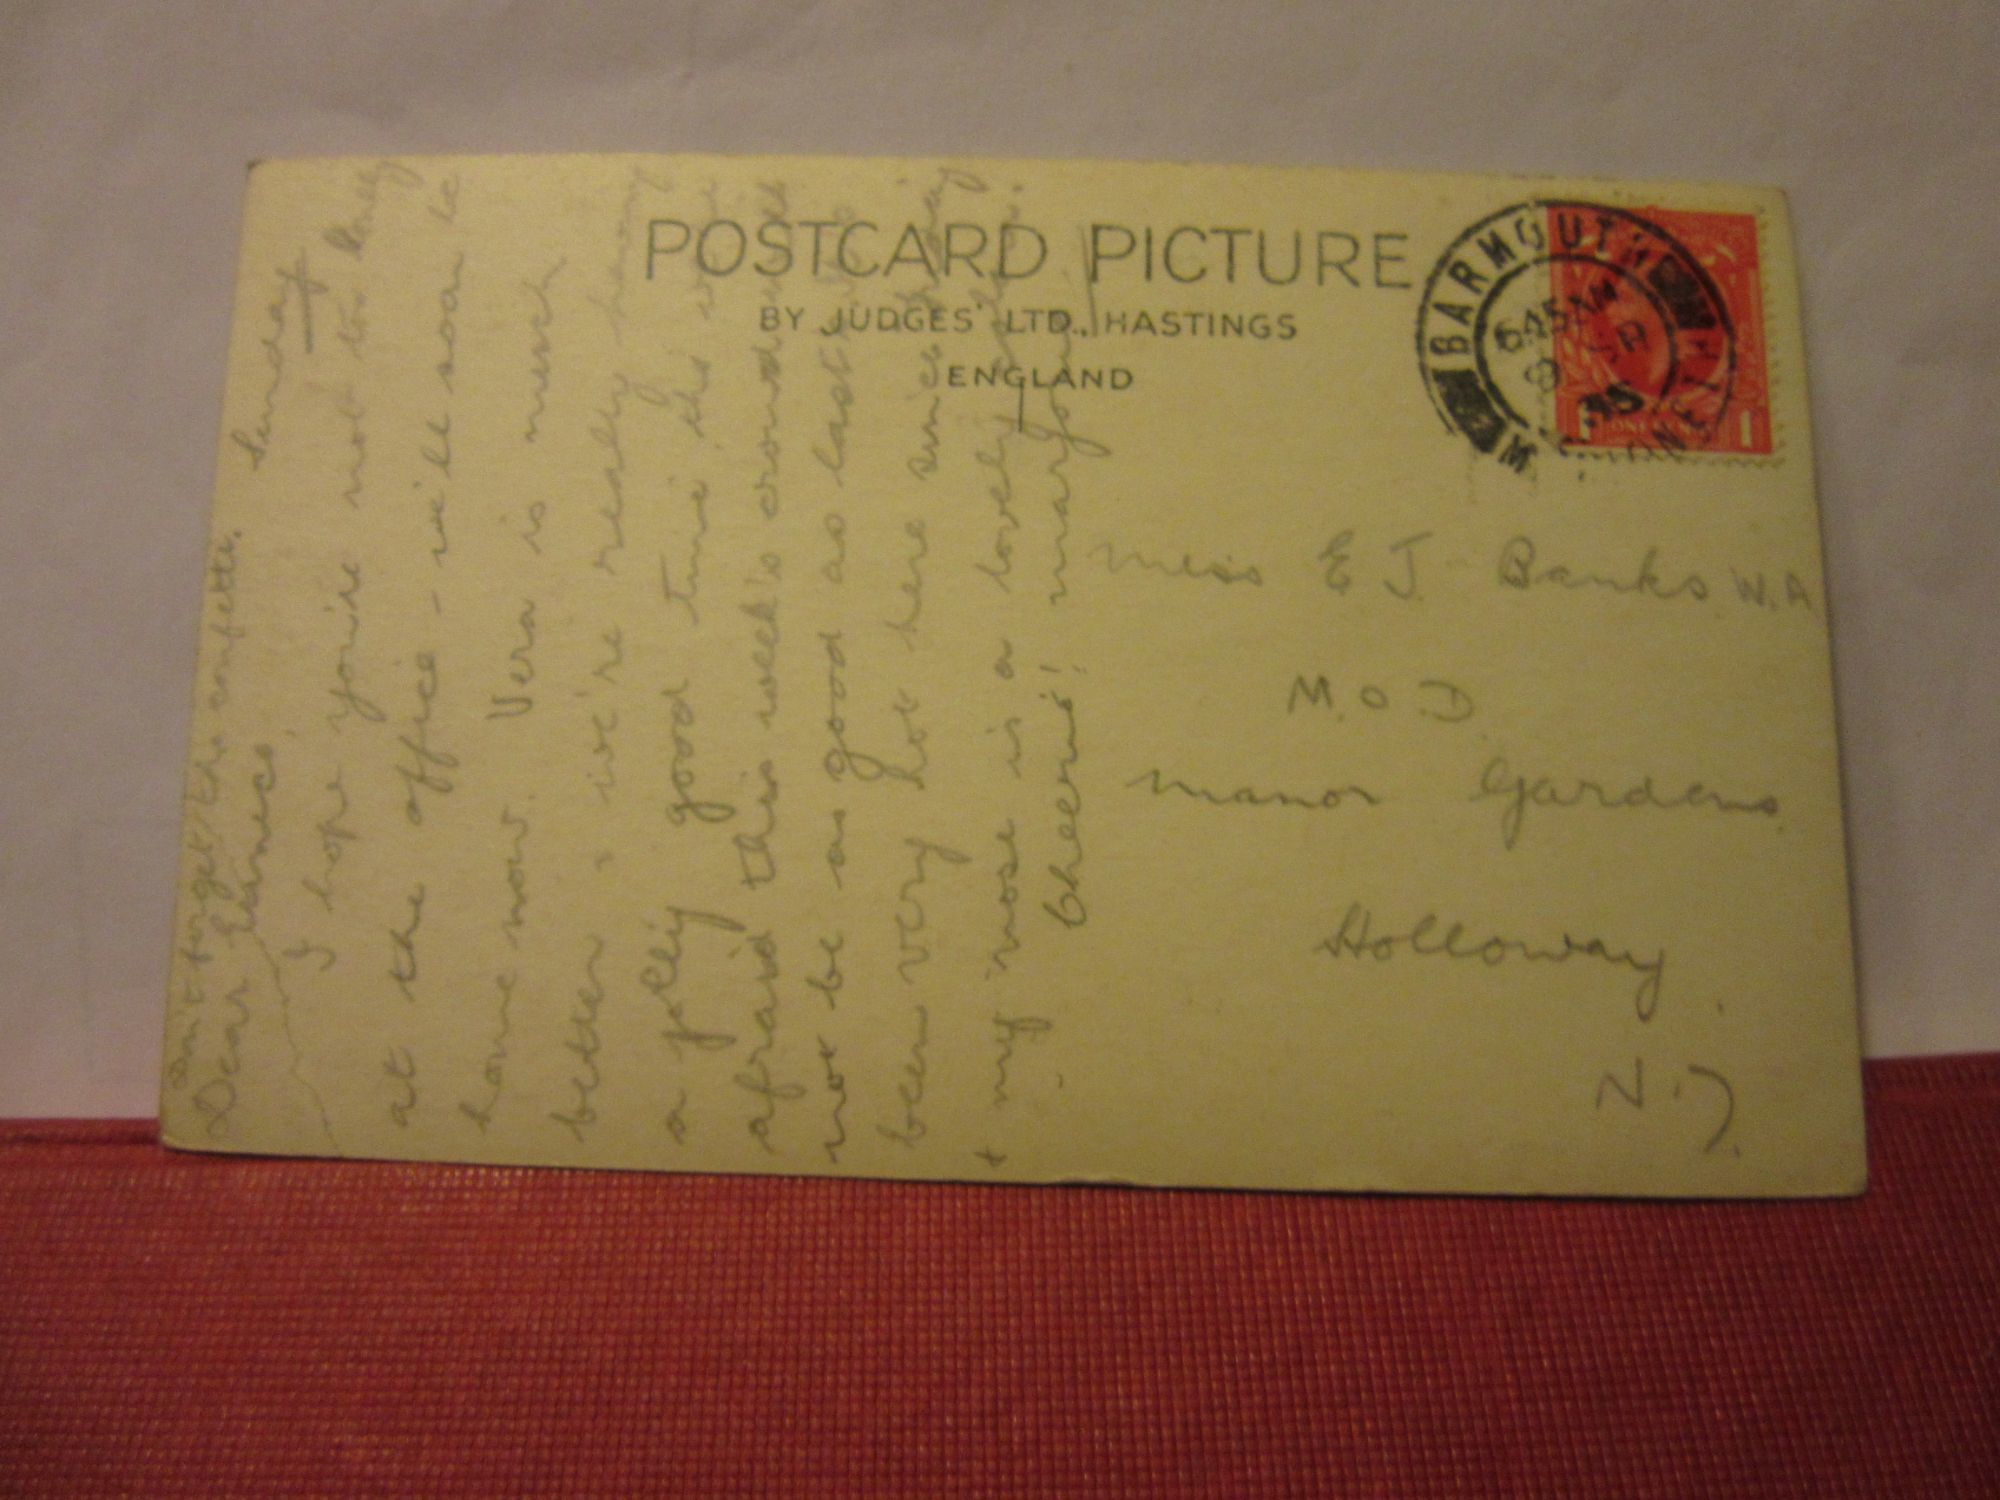 POSTCARD PICTURE
BY JUDGES' LTD., HASTINGS
ENGLAND
BARMOUTH
6 45 AM
8
35
MERIONETH
1 ONE PENNY 1
Don't forget the confetti.
Sunday
Dear
I hope you're not too busy
at the office - we'll soon be
home now. Vera is much
better, we're really having
a jolly good time this year
afraid this week's crowd will
not be as good as last
been very hot here since
+ my nose is a lovely
Cheerio! Marjorie
Miss E J Banks
M.O.D
Manor Gardens
Holloway
N.7.